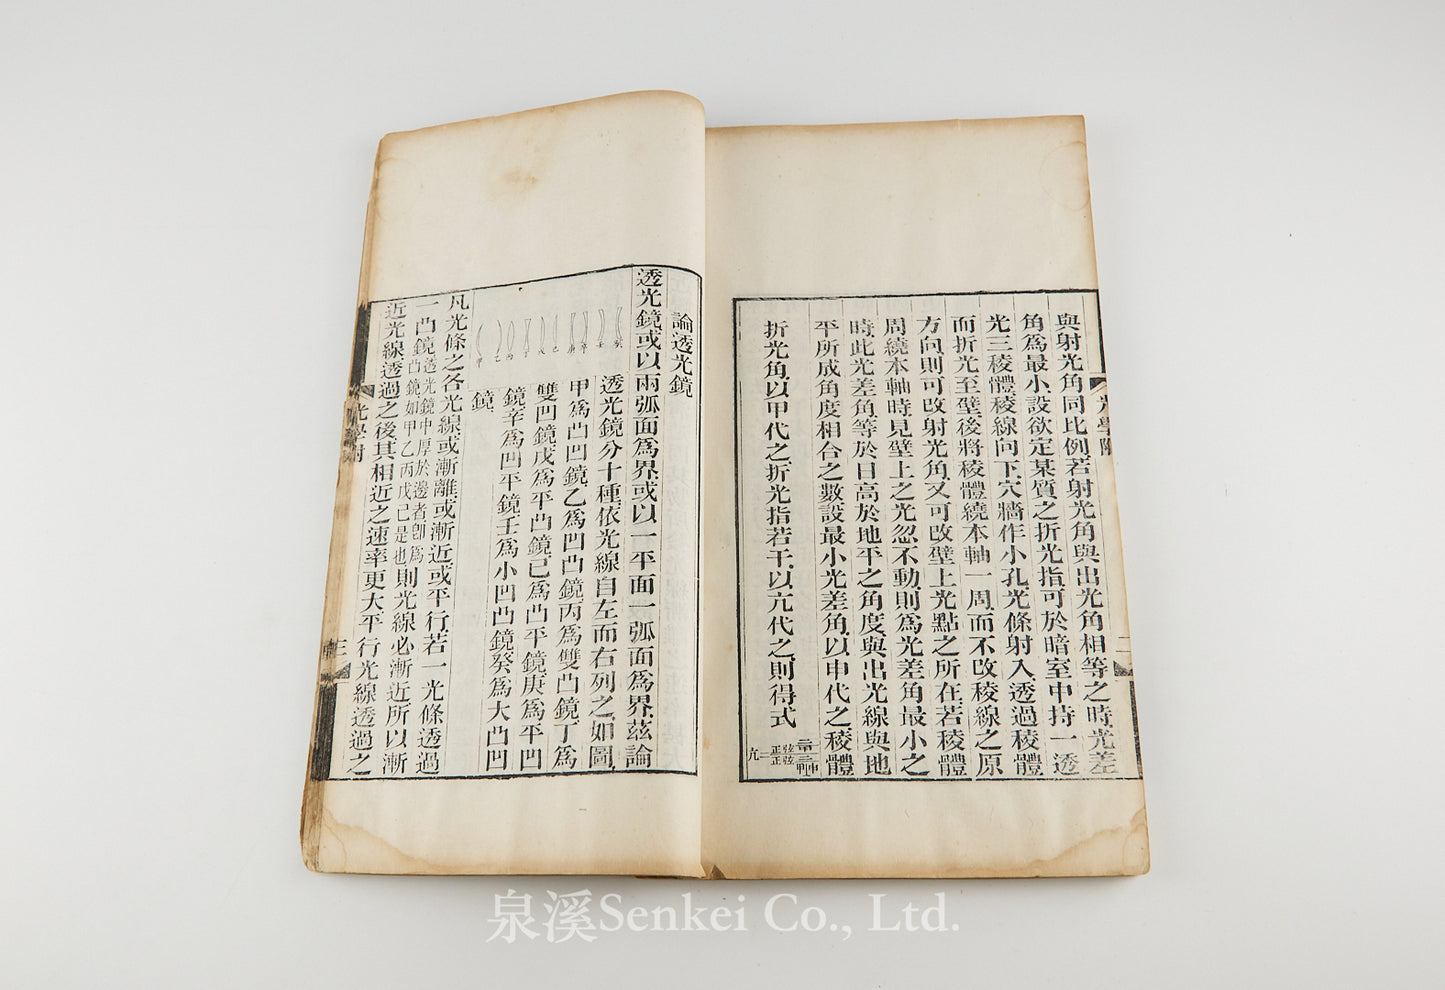 與射光角同比例若射光角與出光角相等之時光差
角爲最小設欲定某質之折光指可於暗室中持一透
光三稜體稜線向下穴牆作小孔光條射入透過稜體
而折光至壁後將稜體繞本軸一周而不改稜線之原
方向則可改射光角又可改壁上光點之所在若稜體
周繞本軸時見壁上之光忽不動則爲光差角最小之
時此光差角等於日高於地平之角度與出光線與地
平所成角度相合之數設最小光差角以申代之稜體
折光角以甲代之折光指若干以亢代之則得式
光學附
二
論透光鏡
透光鏡或以兩弧面爲界或以一平面一弧面爲界茲論
透光鏡分十種依光線自左而右列之如圖
甲爲凸凹鏡乙爲凹凸鏡丙爲雙凸鏡丁爲
雙凹鏡戊爲平凸鏡己爲凸平鏡庚爲平凹
鏡辛爲凹平鏡壬爲小凹凸鏡癸爲大凸凹
鏡
癸
壬
辛
庚
己
戊
丁
丙
乙
甲
凡光條之各光線或漸離或漸近或平行若一光條透過
一凸鏡透光鏡中厚於邊者卽爲凸鏡如甲乙丙戊己是也則光線必漸近所以漸
近光線透過之後其相近之速率更大平行光線透過之
光學附
三
泉溪Senkei Co., Ltd.